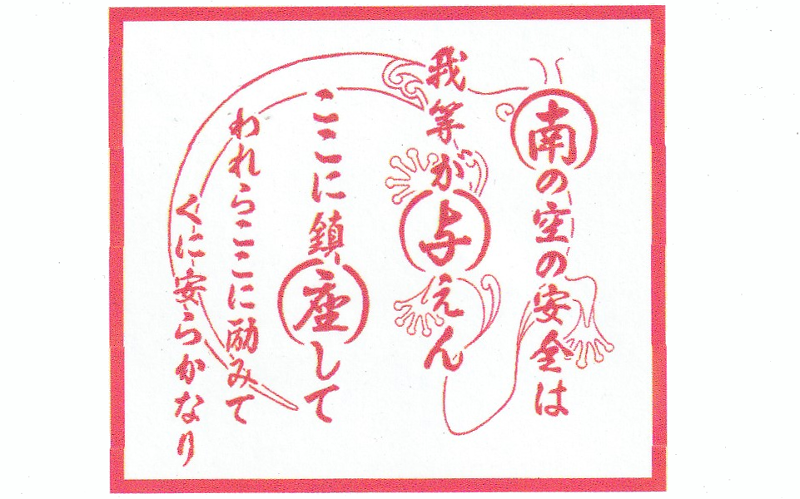 南の空の安全は
我等が与えん
ここに鎮座して
われらここに励みて
くに安らかなり